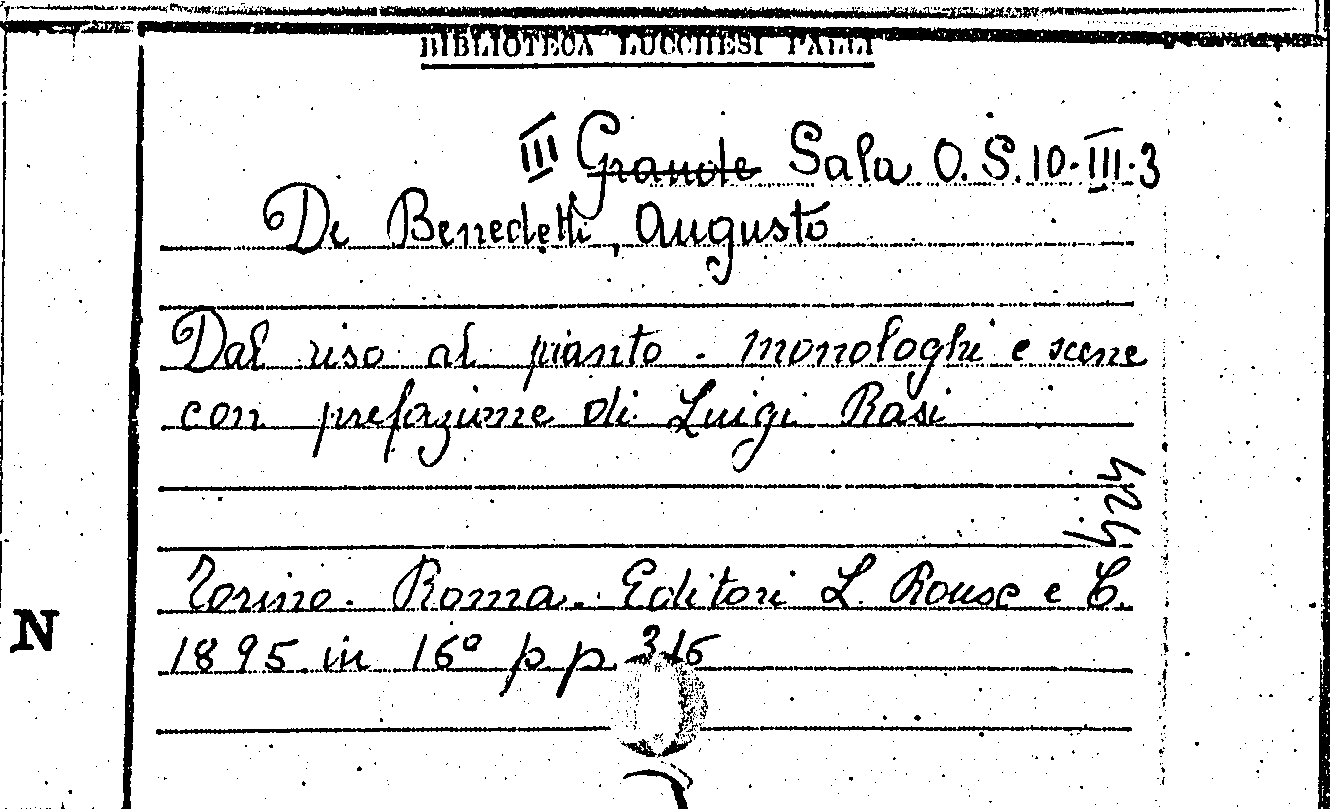 BIBLIOTECA LUCCHESI PALLI
III Grande Sala O.S.10.III.3
De Benedetti, Augusto
Dal riso al pianto - monologhi e scene
con prefazione di Luigi Rasi
424
Torino. Roma. Editori L. Rouse e C.
1895 in 16° pp. 316
N